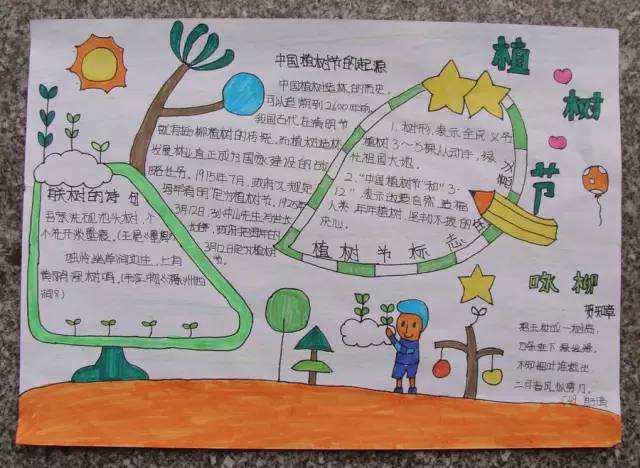 植树节
中国植树节的起源
中国植树造林的历史,
可以追溯到2600年前,
我国古代在清明节
就有插柳植树的传统,而植树造林
发展林业真正成为国家建设的战
1915年7月,政府又规定
将每年清明定为植树节。1925年
3月12日,孙中山先生与世长
长辞,政府把每年的
3月12日定为植树
节。
1.树形,表示全民义务
植树3~5棵,人人动手,绿
化祖国大地。
2."中国植树节"和"3·
12"表示改造自然,造福
人类,年年植树,坚韧不拔的
决心。
植树节标志
有关树的诗句
吾家洗砚池头树,个
个花开淡墨痕。(王冕《墨梅》)
独怜幽草涧边生,上有
黄鹂深树鸣。(韦应物《滁州西
涧》)
咏柳
贺知章
碧玉妆成一树高,
万条垂下绿丝绦。
不知细叶谁裁出,
二月春风似剪刀。